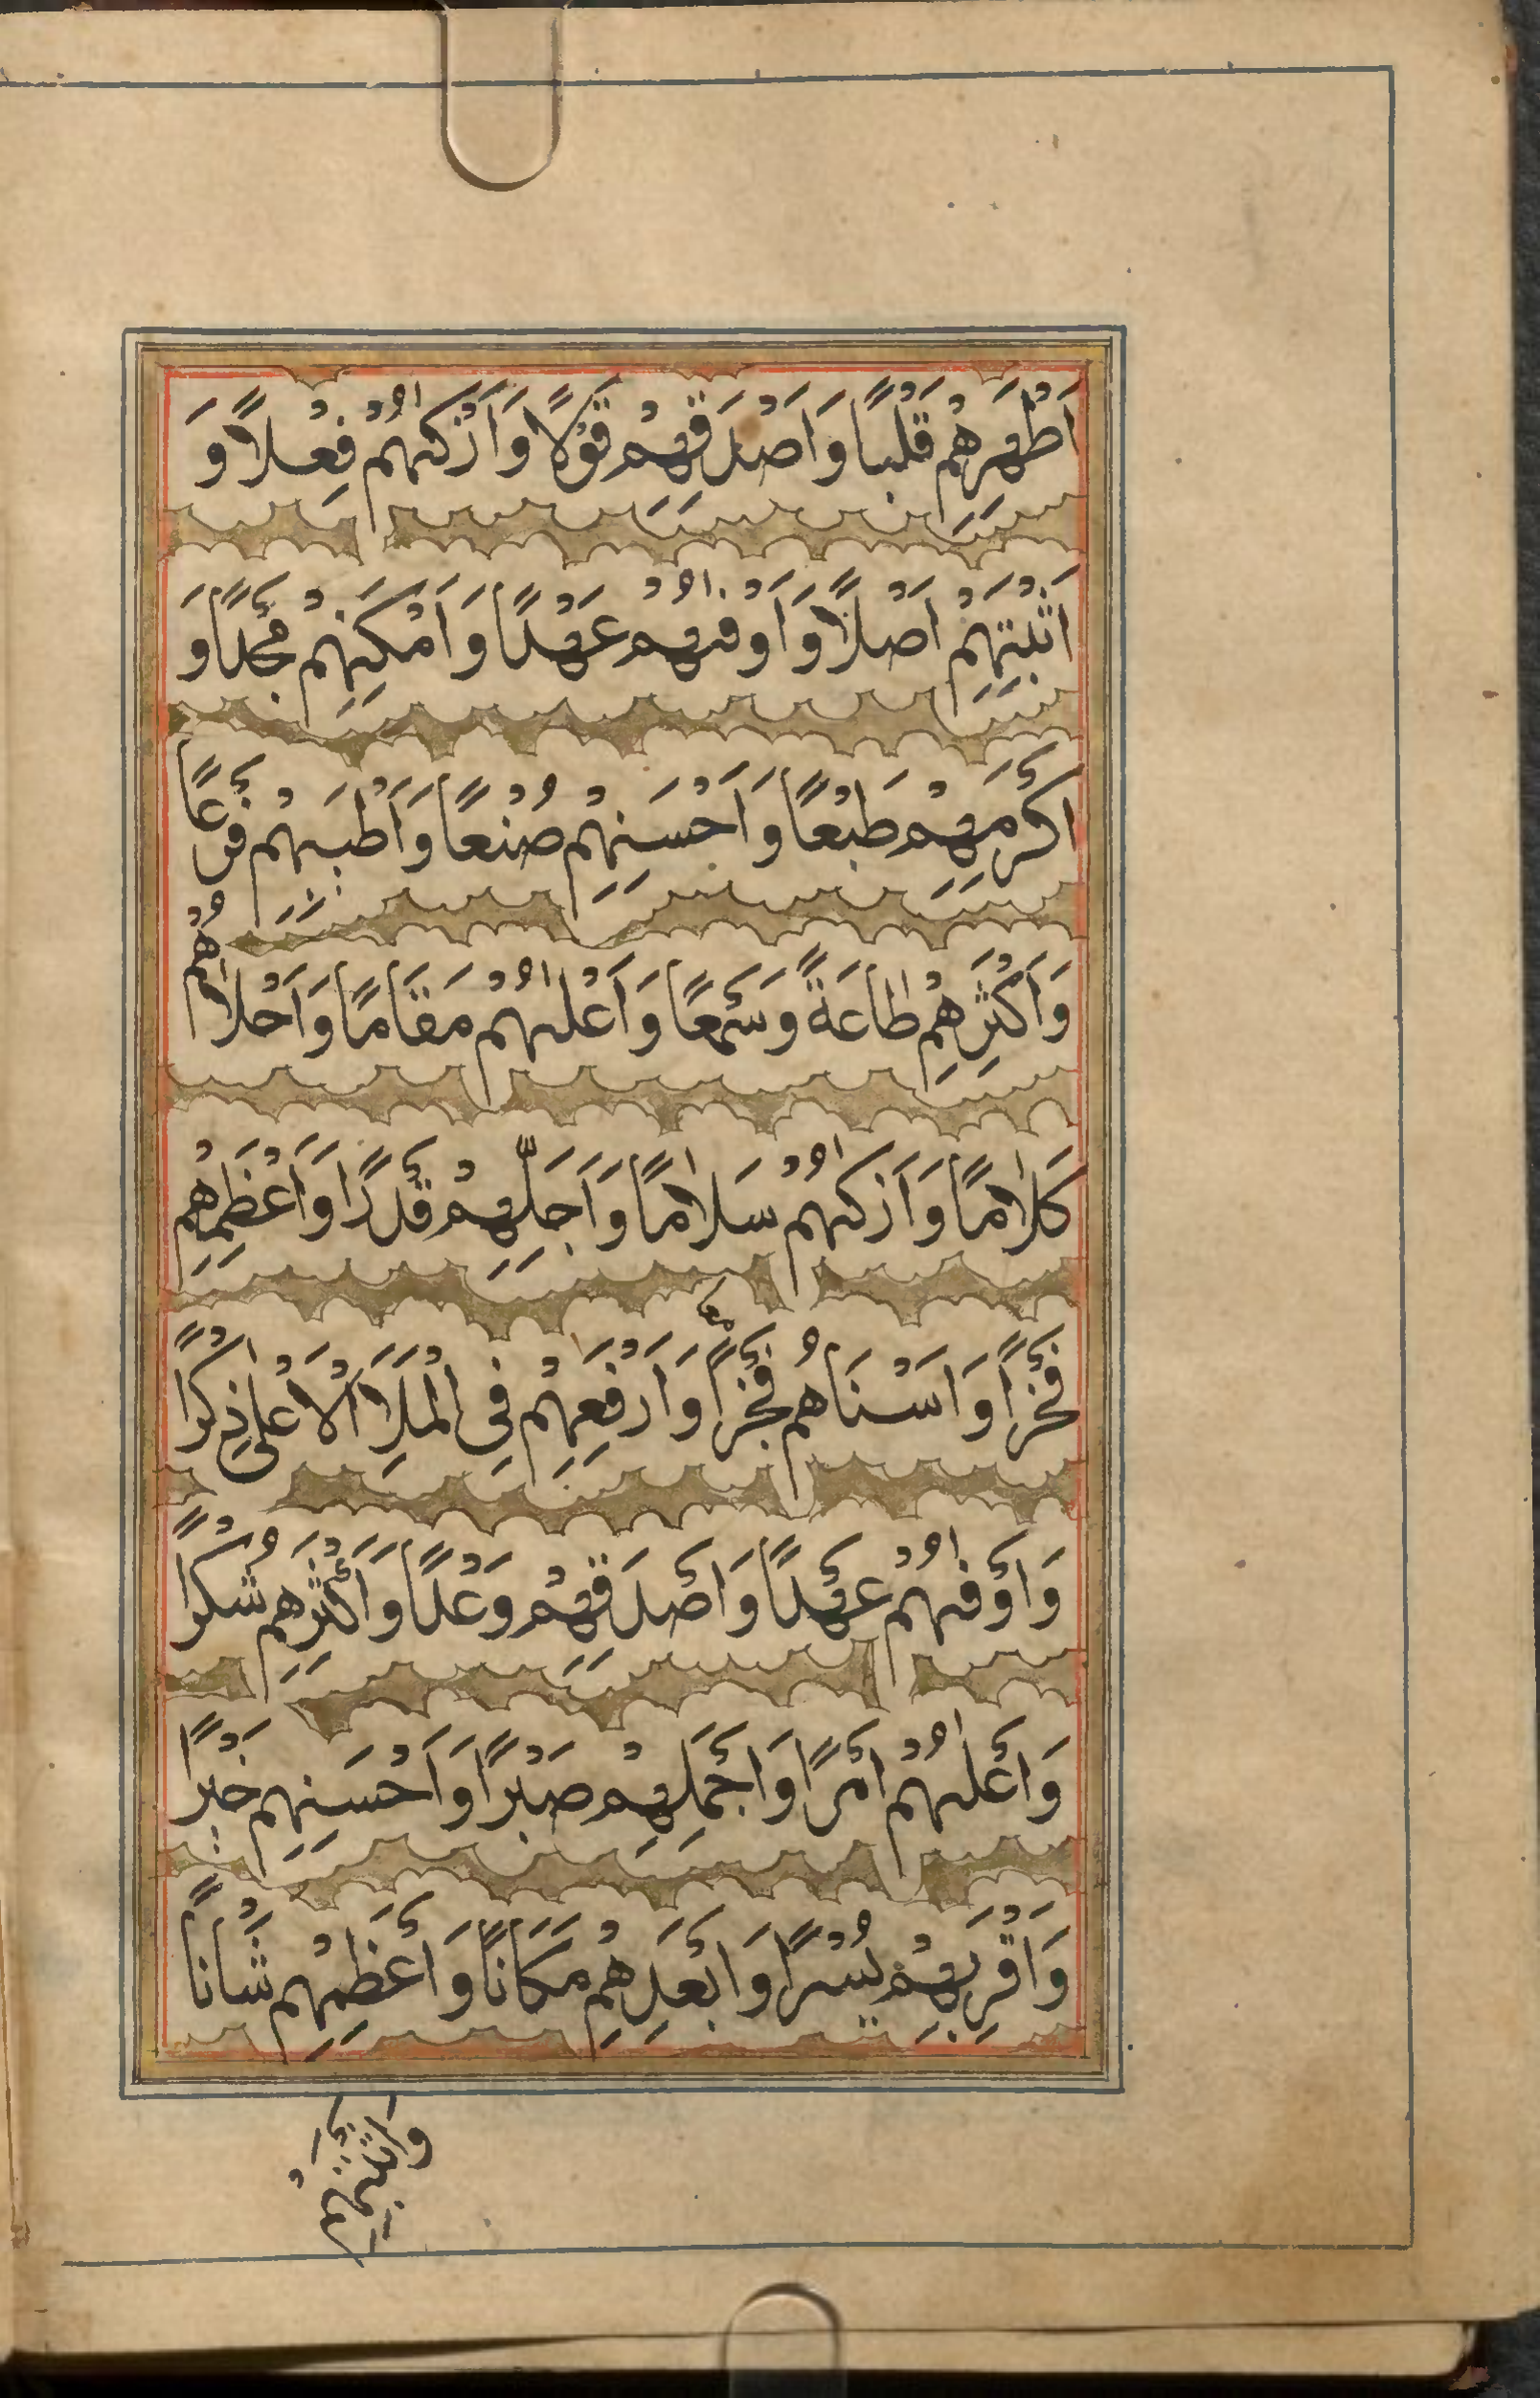 اَطْهَرِهِمْ قَلْبًا وَاَصْدَقِهِمْ قَوْلًا وَاَزْكٰىهُمْ فِعْلًا وَ
اَثْبَتِهِمْ اَصْلًا وَاَوْفٰىهُمْ عَهْدًا وَاَمْكَنِهِمْ مَجْدًا وَ
اَكْرَمِهِمْ طَبْعًا وَاَحْسَنِهِمْ صُنْعًا وَاَطْيَبِهِمْ فَرْعًا
وَاَكْثَرِهِمْ طَاعَةً وَسَمْعًا وَاَعْلٰىهُمْ مَقَامًا وَاَحْلَاهُمْ
كَلَامًا وَاَزْكٰىهُمْ سَلَامًا وَاَجَلِّهِمْ قَدْرًا وَاَعْظَمِهِمْ
فَخْرًا وَاَسْنَاهُمْ فَجْرًا وَاَرْفَعِهِمْ فِى الْمَلَاِ الْاَعْلٰى ذِكْرًا
وَاَوْفٰىهُمْ عَهْدًا وَاَصْدَقِهِمْ وَعْدًا وَاَكْثَرِهِمْ شُكْرًا
وَاَعْلٰىهُمْ اَمْرًا وَاَجْمَلِهِمْ صَبْرًا وَاَحْسَنِهِمْ خَيْرًا
وَاَقْرَبِهِمْ يُسْرًا وَاَبْعَدِهِمْ مَكَانًا وَاَعْظَمِهِمْ شَاْنًا
وَاَثْبَتِهِمْ